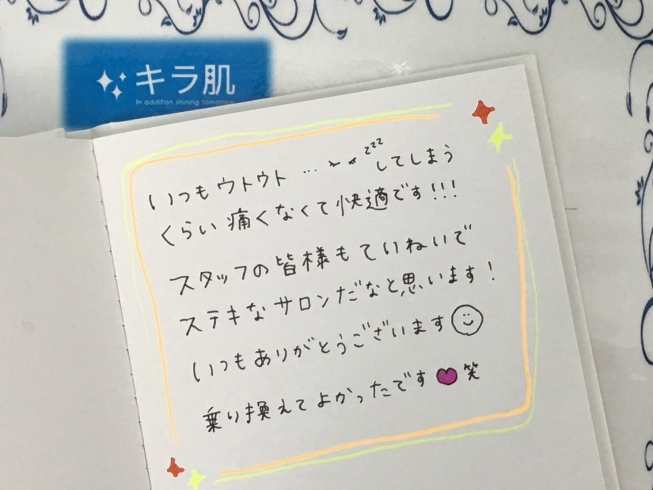 キラ肌
In addition shining tomorrow
いつもウトウト…zzzしてしまう
くらい痛くなくて快適です!!!
スタッフの皆様もていねいで
ステキなサロンだなと思います!
いつもありがとうございます
乗り換えてよかったです 笑